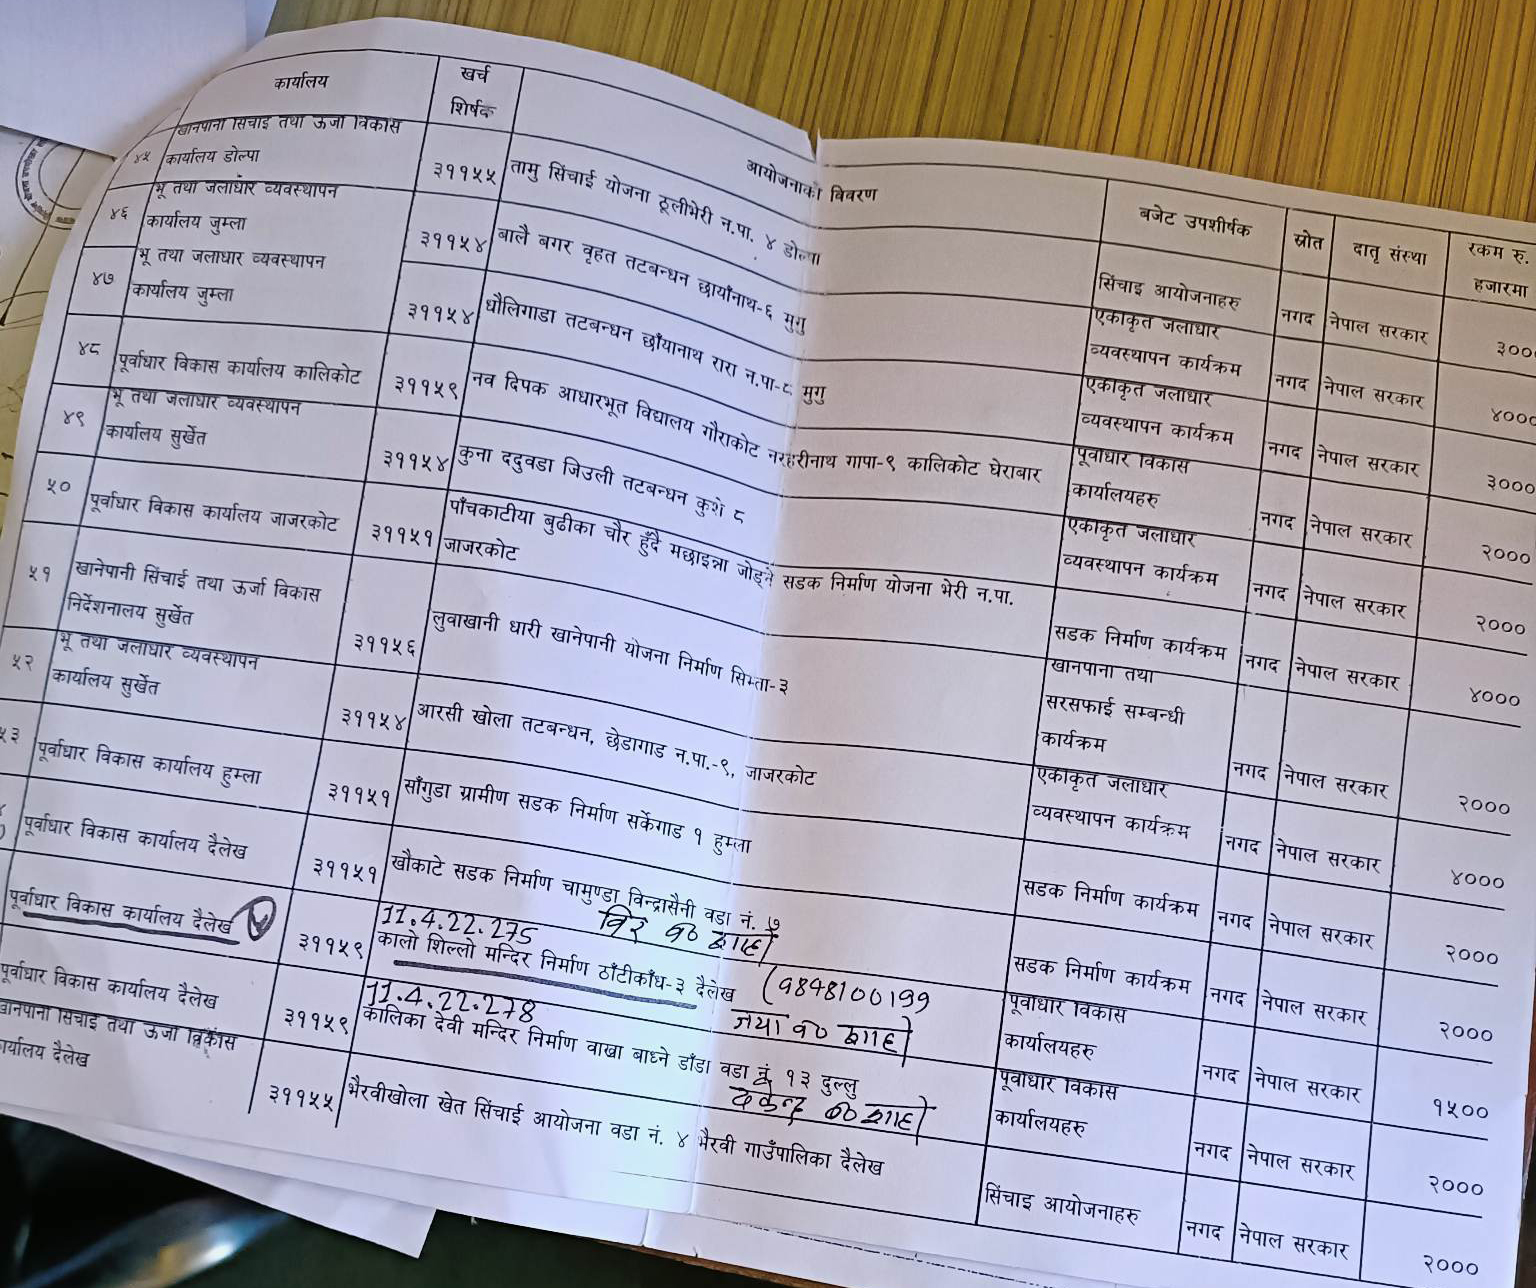 कार्यालय
खर्च
शिर्षक
आयोजनाको विवरण
बजेट उपशीर्षक
स्रोत
दातृ संस्था
रकम रु.
हजारमा
४५
खानेपानी सिंचाई तथा ऊर्जा विकास
कार्यालय डोल्पा
३११५५
तामु सिंचाई योजना ठूलीभेरी न.पा. ४ डोल्पा
सिंचाइ आयोजनाहरु
नगद
नेपाल सरकार
३०००
४६
भू तथा जलाधार व्यवस्थापन
कार्यालय जुम्ला
३११५४
बालै बगर वृहत तटबन्धन छायाँनाथ-६ मुगु
एकीकृत जलाधार
व्यवस्थापन कार्यक्रम
नगद
नेपाल सरकार
४०००
४७
भू तथा जलाधार व्यवस्थापन
कार्यालय जुम्ला
३११५४
धौलिगाडा तटबन्धन छाँयानाथ रारा न.पा-८ मुगु
एकीकृत जलाधार
व्यवस्थापन कार्यक्रम
नगद
नेपाल सरकार
३०००
४८
पूर्वाधार विकास कार्यालय कालिकोट
३११५९
नव दिपक आधारभूत विद्यालय गौराकोट नरहरीनाथ गापा-९ कालिकोट घेराबार
पूर्वाधार विकास
कार्यालयहरु
नगद
नेपाल सरकार
२०००
४९
भू तथा जलाधार व्यवस्थापन
कार्यालय सुर्खेत
३११५४
कुना ददुवडा जिउली तटबन्धन कुशे ८
एकीकृत जलाधार
व्यवस्थापन कार्यक्रम
नगद
नेपाल सरकार
२०००
५०
पूर्वाधार विकास कार्यालय जाजरकोट
३११५१
पाँचकाटीया बुढीका चौर हुँदै मछाइन्ना जोड्ने सडक निर्माण योजना भेरी न.पा.
जाजरकोट
सडक निर्माण कार्यक्रम
नगद
नेपाल सरकार
४०००
५१
खानेपानी सिंचाई तथा ऊर्जा विकास
निर्देशनालय सुर्खेत
३११५६
लुवाखानी धारी खानेपानी योजना निर्माण सिम्ता-३
खानेपानी तथा
सरसफाई सम्बन्धी
कार्यक्रम
नगद
नेपाल सरकार
२०००
५२
भू तथा जलाधार व्यवस्थापन
कार्यालय सुर्खेत
३११५४
आरसी खोला तटबन्धन, छेडागाड न.पा.-९, जाजरकोट
एकीकृत जलाधार
व्यवस्थापन कार्यक्रम
नगद
नेपाल सरकार
४०००
५३
पूर्वाधार विकास कार्यालय हुम्ला
३११५१
साँगुडा ग्रामीण सडक निर्माण सर्केगाड १ हुम्ला
सडक निर्माण कार्यक्रम
नगद
नेपाल सरकार
२०००
पूर्वाधार विकास कार्यालय दैलेख
३११५१
खौकाटे सडक निर्माण चामुण्डा विन्द्रासैनी वडा नं. ७
सडक निर्माण कार्यक्रम
नगद
नेपाल सरकार
२०००
11.4.22.275
पूर्वाधार विकास कार्यालय दैलेख
३११५९
कालो शिल्लो मन्दिर निर्माण ठाँटीकाँध-३ दैलेख
(9848100199
पूर्वाधार विकास
कार्यालयहरु
नगद
नेपाल सरकार
१५००
11.4.22.278
पूर्वाधार विकास कार्यालय दैलेख
३११५९
कालिका देवी मन्दिर निर्माण वाखा बाध्ने डाँडा वडा नं १३ दुल्लु
पूर्वाधार विकास
कार्यालयहरु
नगद
नेपाल सरकार
२०००
खानेपानी सिंचाई तथा ऊर्जा विकास
कार्यालय दैलेख
३११५५
भैरवीखोला खेत सिंचाई आयोजना वडा नं. ४ भैरवी गाउँपालिका दैलेख
सिंचाइ आयोजनाहरु
नगद
नेपाल सरकार
२०००